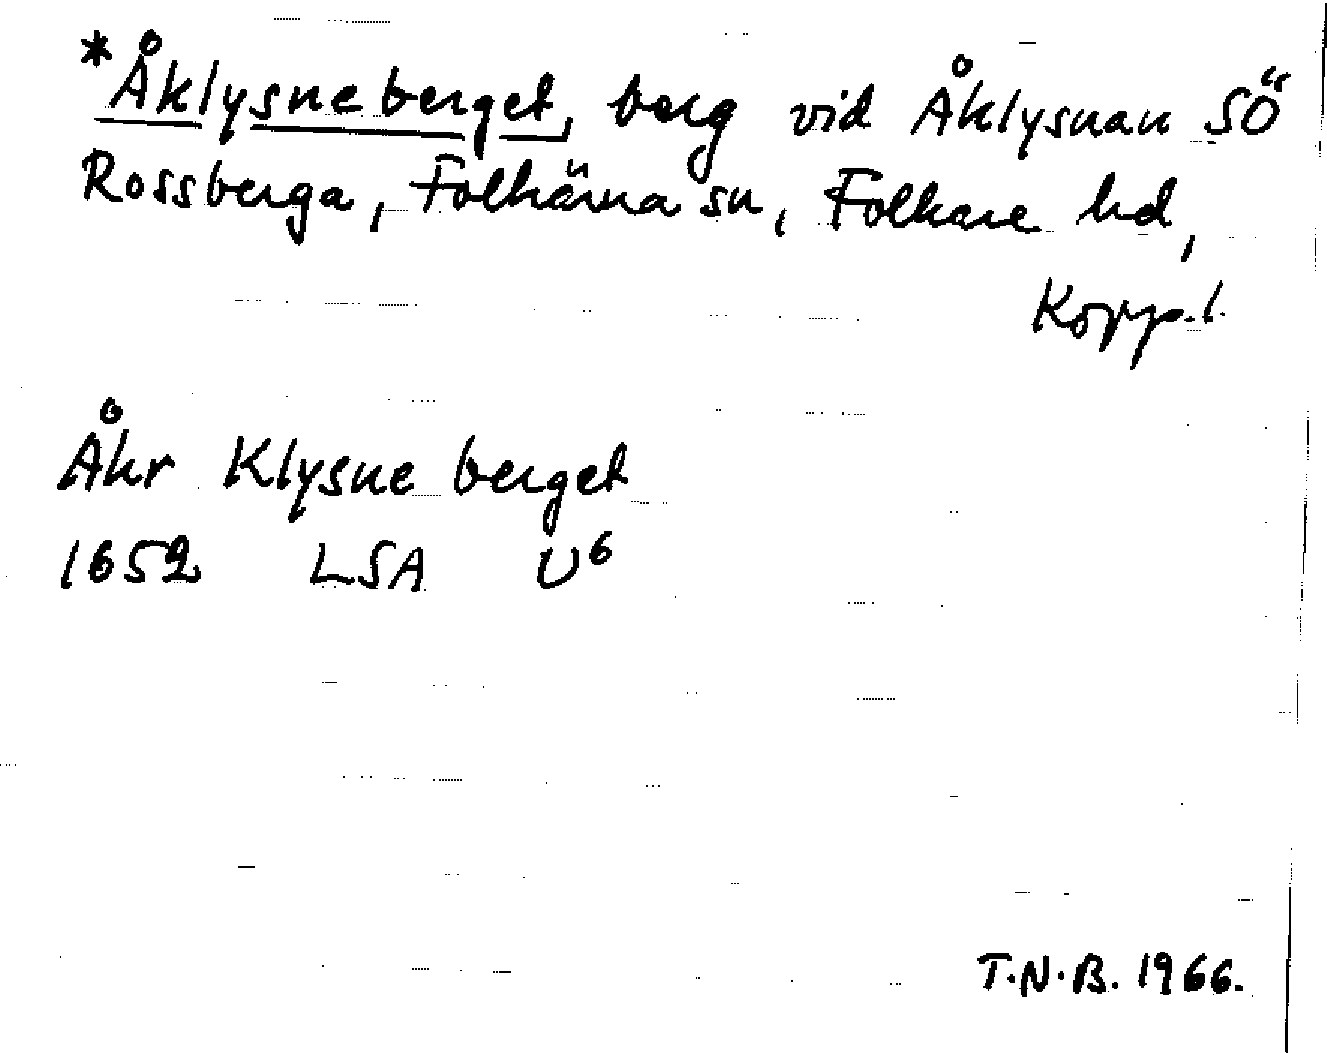 *Åklysneberget, berg vid Åklysnan SÖ
Rossberga, Folkärna sn, Folkare hd,
Kopp.l.
Åkr Klysne berget
1652 LSA U6
T.N.B. 1966.